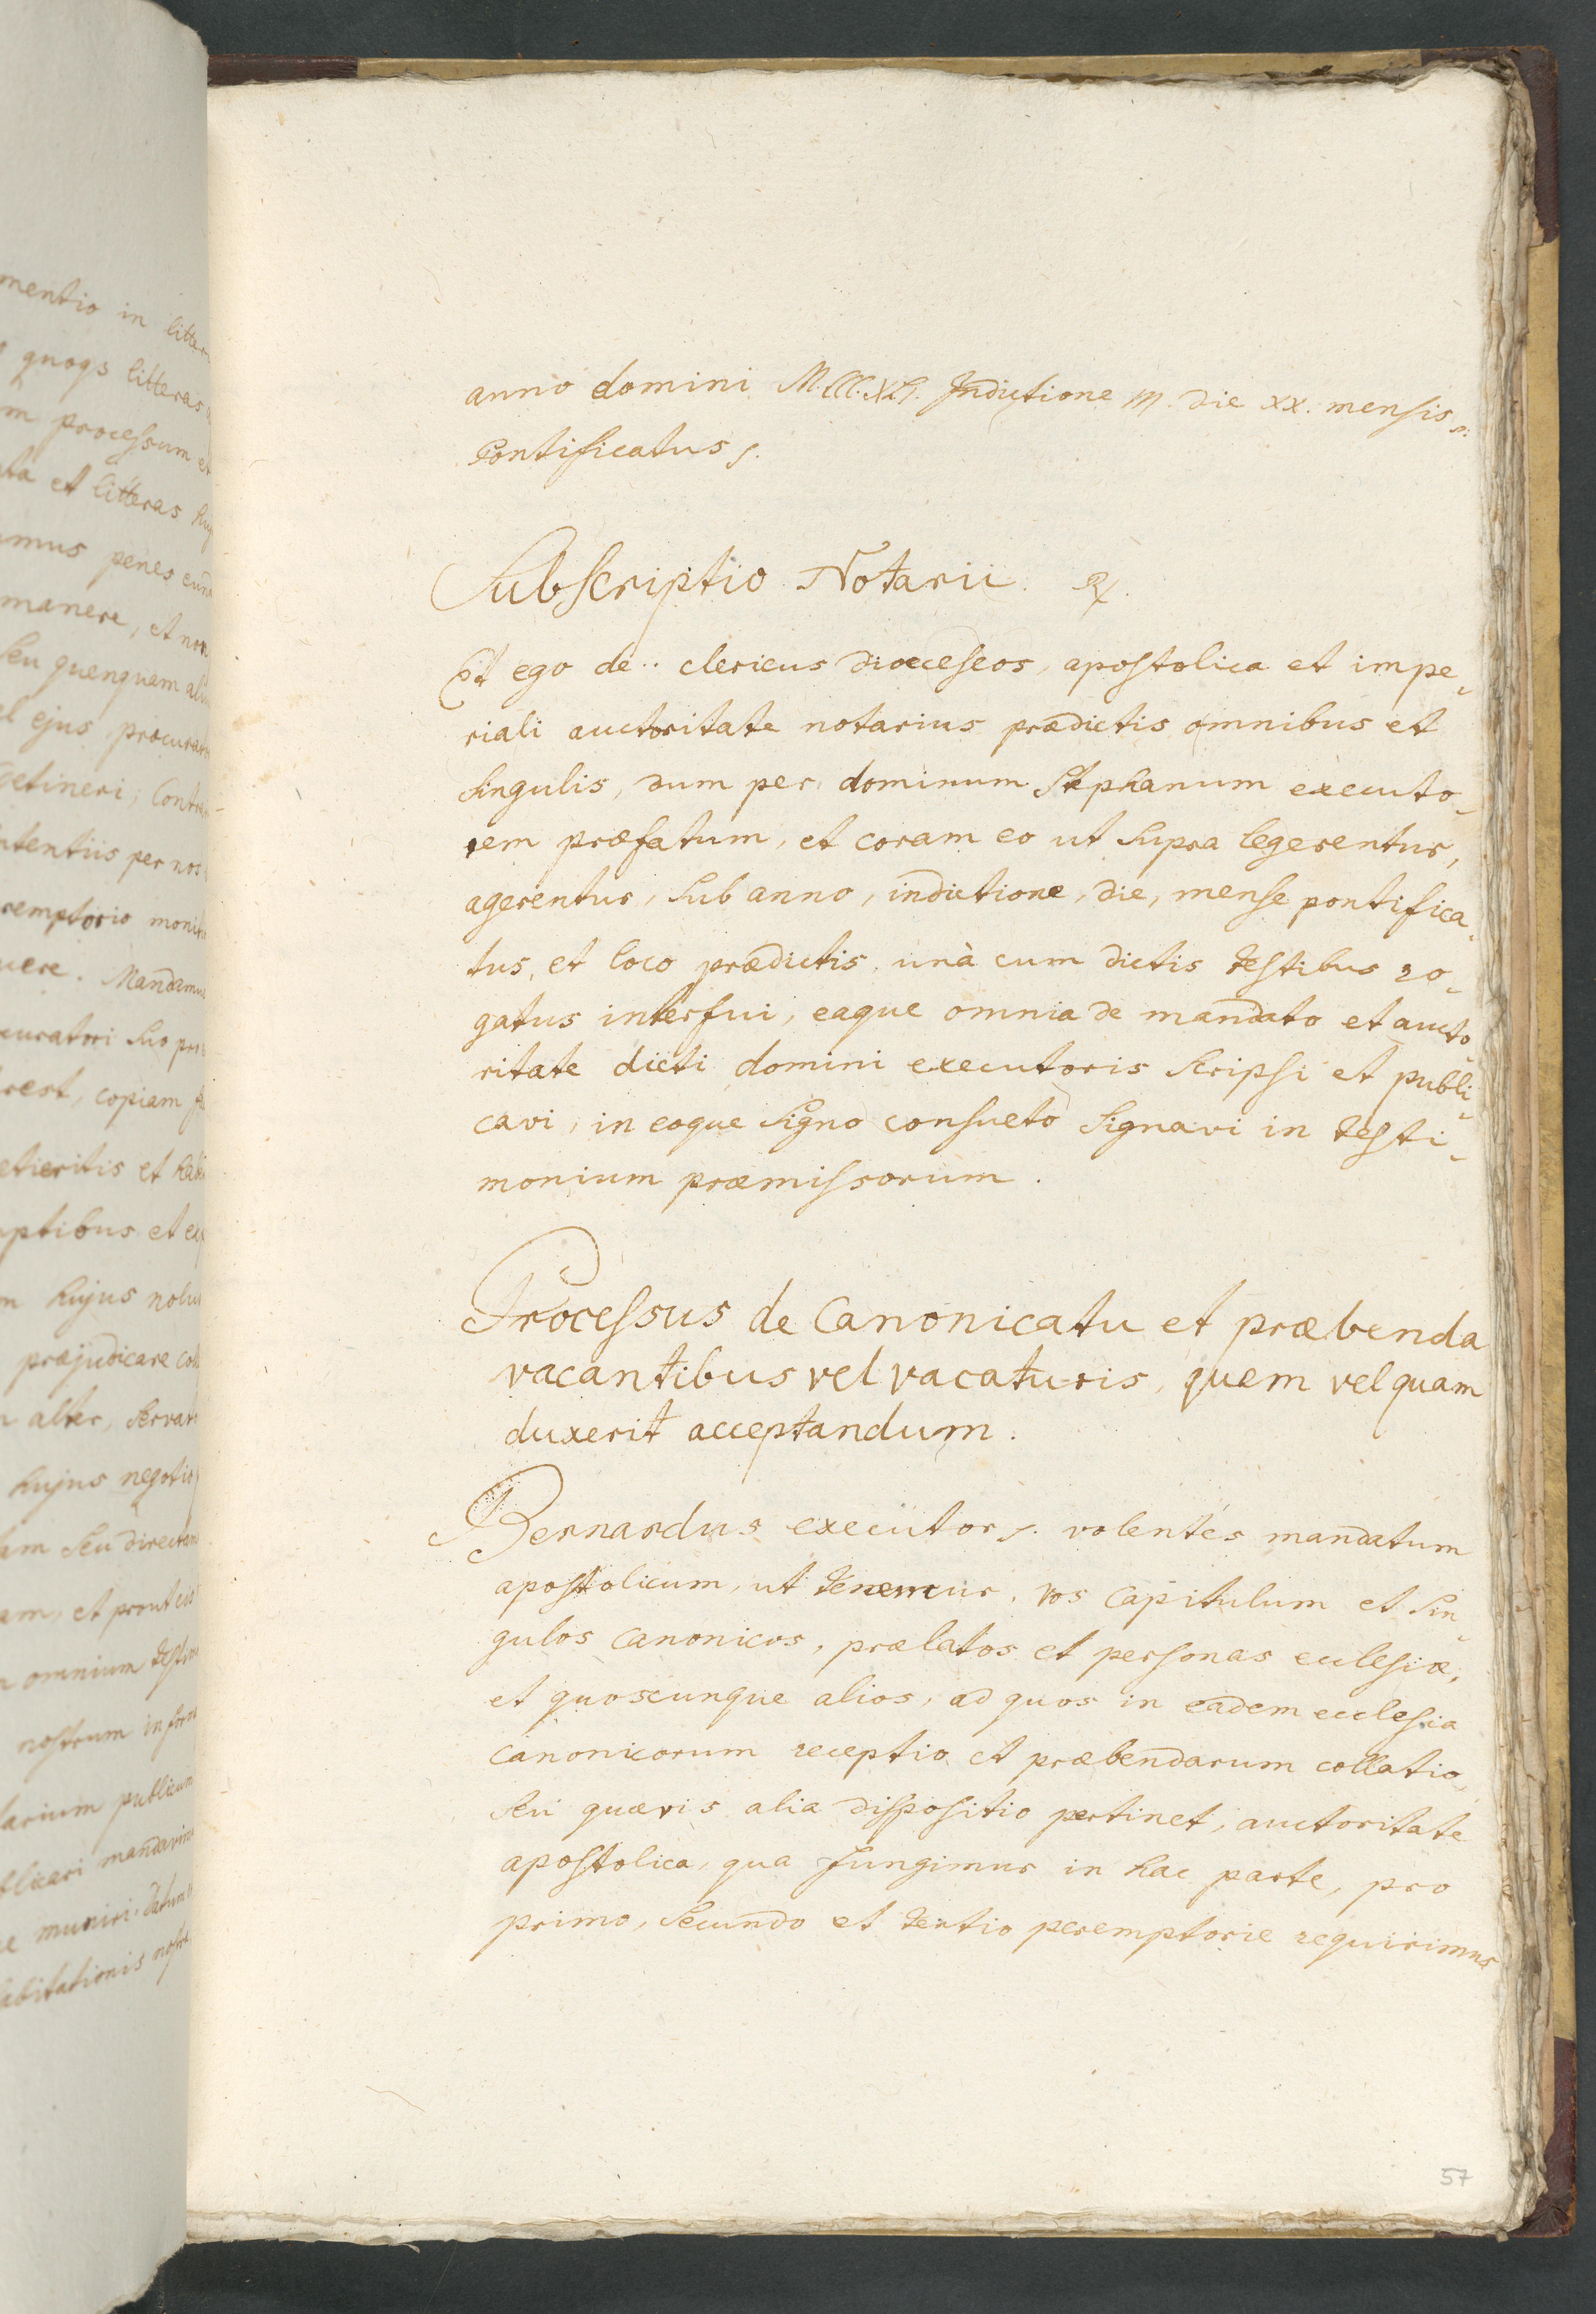 mentio in litter
quoqs litteras
m processum et
ta et litteras huj
mus penes eund
manere, et non
seu quenquam ali
el ejus procurat
detineri; Contra
ntentiis per nos
remptorio monit
uere. Mandamus
curatori suo pro
rest, copiam
etieritis et hab
ptibus et exp
m hujus nolu
præjudicare
alter, servar
hujus negotio
am seu directam
am, et prout eis
omnium testim
nostrum in form
tarium publicum
blicari mandavim
e muniri. Datum
abitationis nostræ
anno domini M.CCC.XLI. Indictione M. die xx. mensis
Pontificatus s.
Subscriptio Notarii.
Et ego de .. clericus dioeceseos, apostolica et impe-
riali auctoritate notarius prædictis omnibus et
singulis, dum per dominum Stephanum executo-
rem præfatum, et coram eo ut supra legerentur,
agerentur, sub anno, indictione, die, mense pontifica-
tus, et loco prædictis, unà cum dictis testibus ro-
gatus interfui, eaque omnia de mandato et aucto-
ritate dicti domini executoris scripsi et publi-
cavi, in eoque signo consueto signavi in testi-
monium præmissorum.
Processus de Canonicatu et præbenda
vacantibus vel vacaturis, quem vel quam
duxerit acceptandum.
Bernardus executor s. volentes mandatum
apostolicum, ut tenemur, vos Capitulum et sin-
gulos canonicos, prælatos et personas ecclesiæ,
et quoscunque alios, ad quos in eadem ecclesia
canonicorum receptio et præbendarum collatio,
seu quævis alia dispositio pertinet, auctoritate
apostolica, qua fungimur in hac parte, pro
primo, secundo et tertio peremptorie requirimus
57